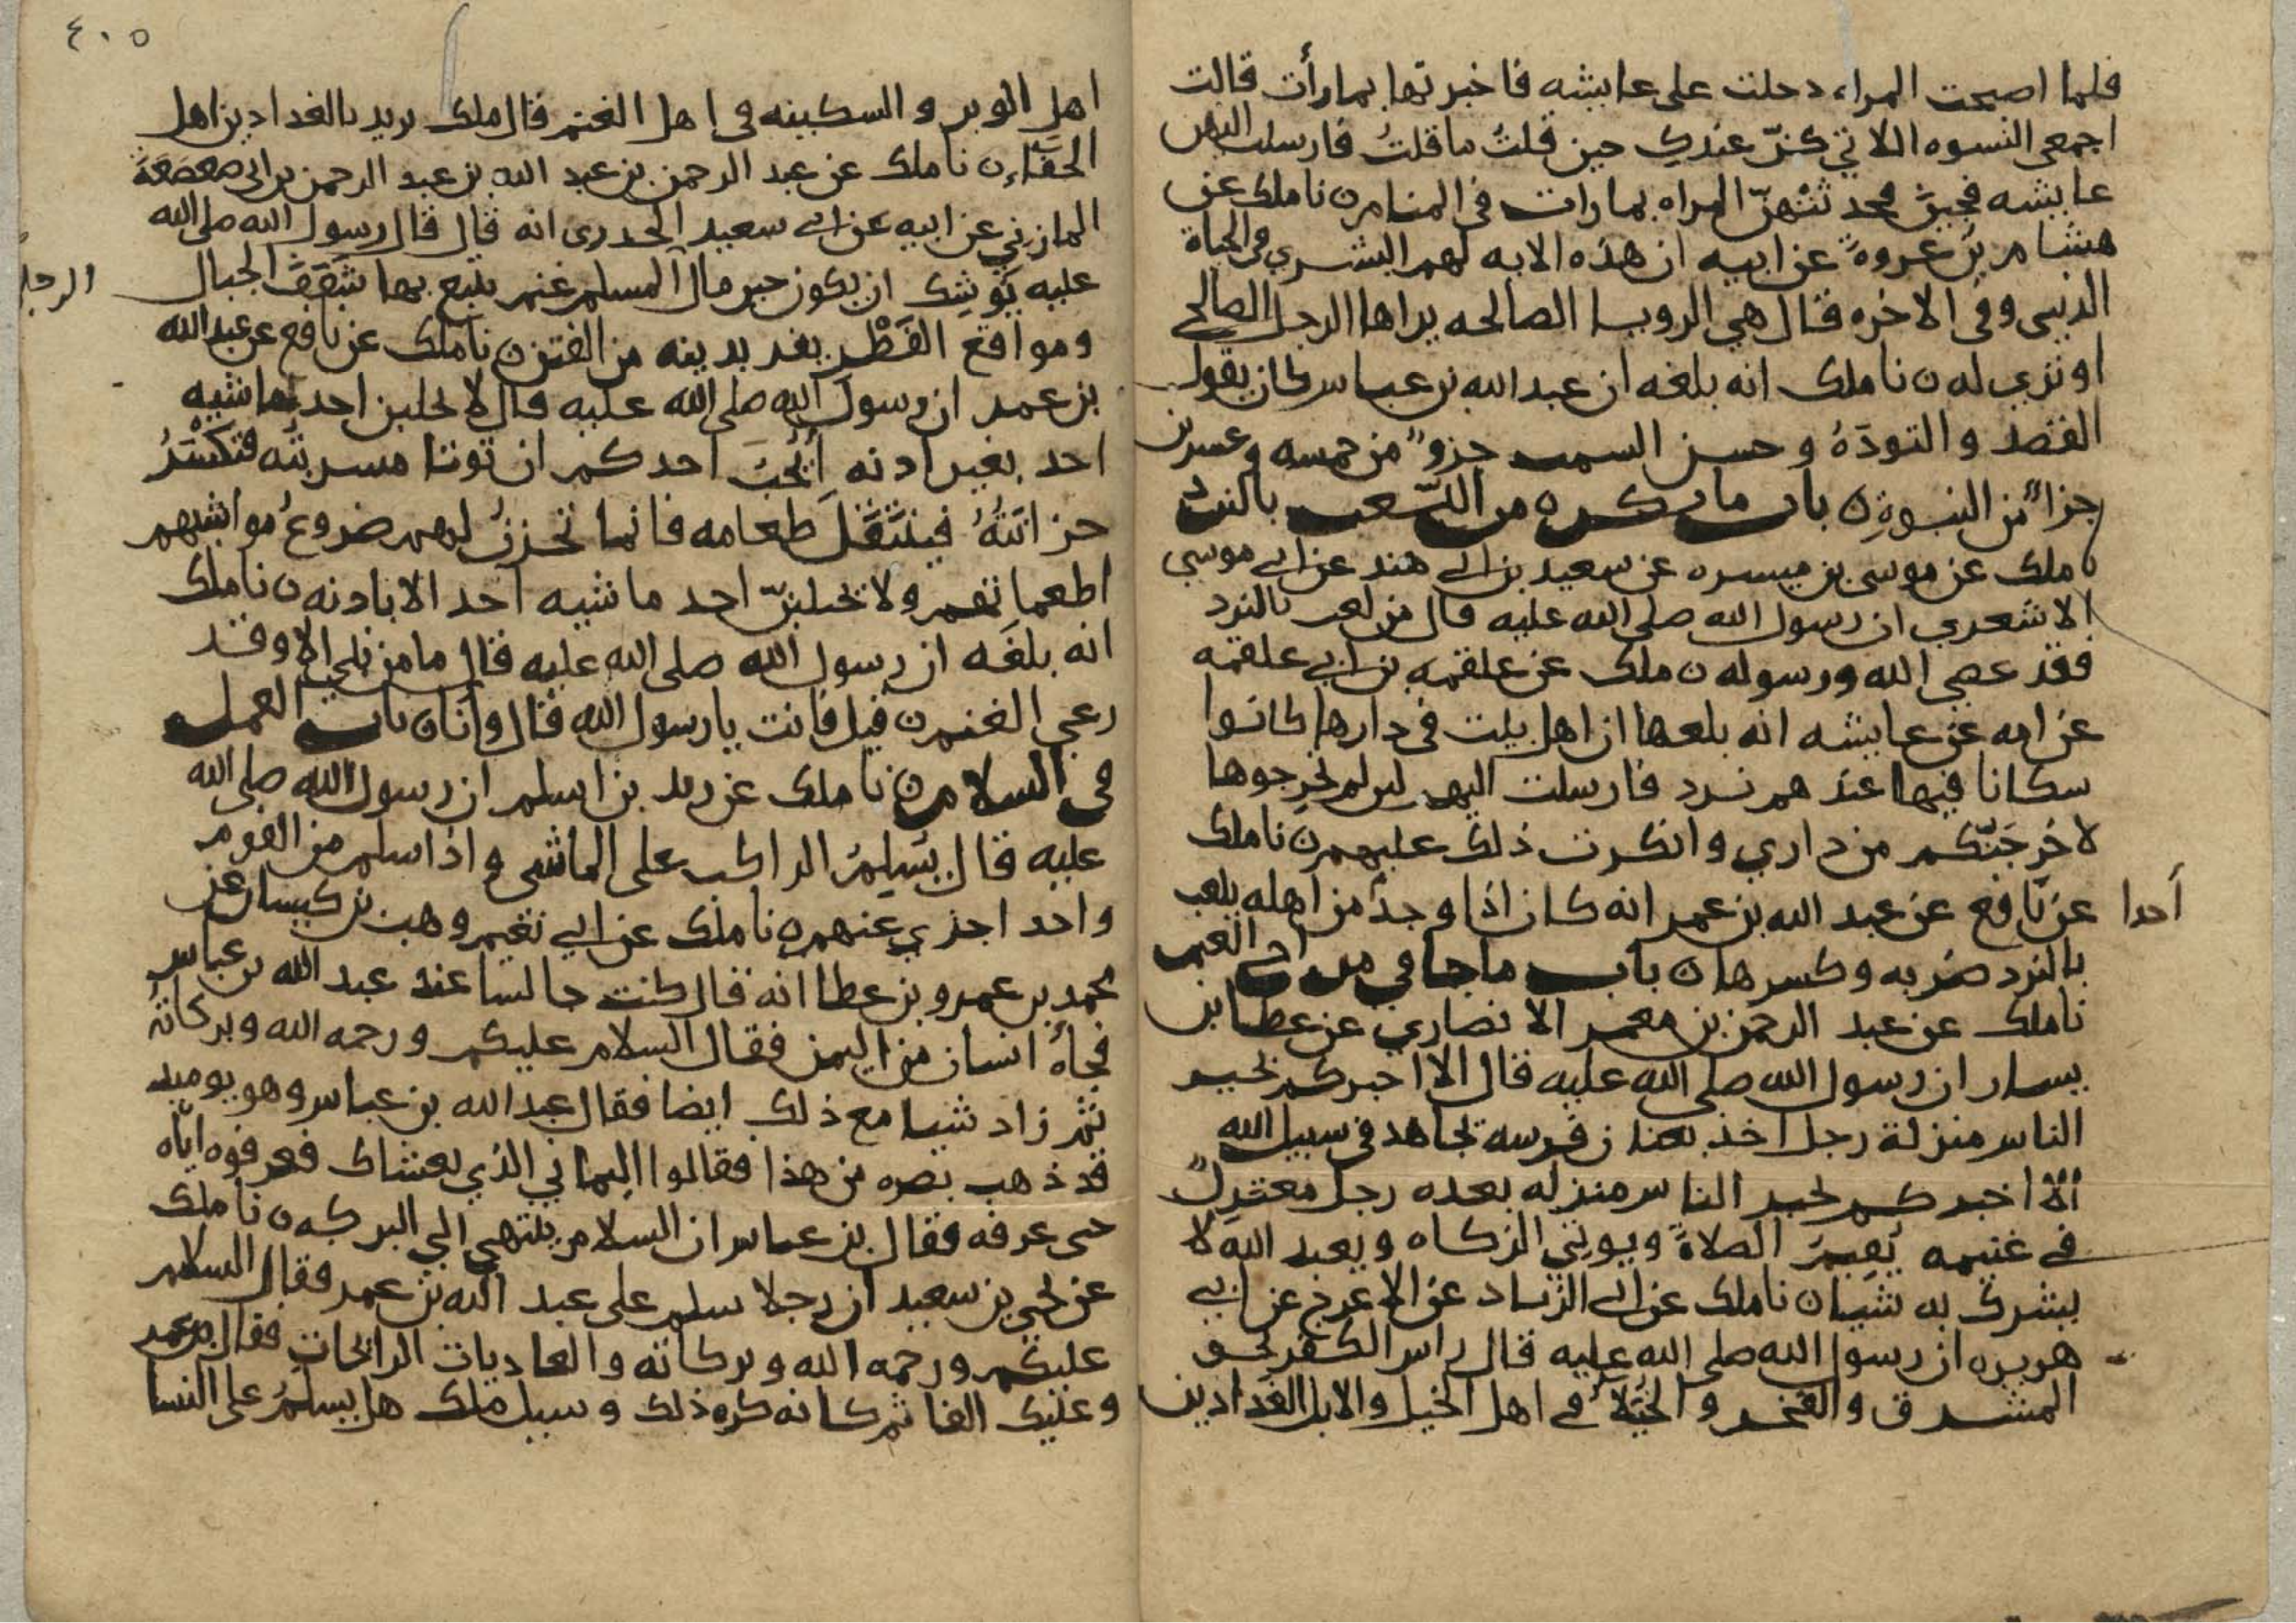 فلما اصبحت المراه دخلت على عايشه فاخبرتها بما رأت قالت
اجمعى النسوه اللاتي كنّ عندكِ حين قلتُ ما قلتُ فارسلت اليهن
عايشه فجين فحدثتهنّ المراه بما رات في المنام ن نا ملك عن
هشام بن عروة عن ابيه ان هذه الايه لهم البشري في الحياة
الدنيى وفي الاخره قال هي الرويا الصالحه يراها الرجل الصالح
او تري له ن نا ملك انه بلغه ان عبد الله بن عباس كان يقول
القصد والتودَةُ وحسن السمت جزوٌ من خمسه وعسرىن
جزاً من النبوةِ ن باب ما يكره من اللّعب بالنرد
نا ملك عن موسى بن ميسره عن سعيد بن ابي هند عن ابي موسي
الاشعري ان رسول الله صلى الله عليه قال من لعب بالنرد
فقد عصي الله ورسوله ن ملك عن علقمه بن ابي علقمه
عن امه عن عايشه انه بلعها ان اهل بيت في دارها كانوا
سكانا فيها عندهم نرد فارسلت اليهم لىن لم تخرجوها
لاخرجَنّكم من داري وانكرت ذلك عليهم ن نا ملك
عن نافع عن عبد الله بن عمر انه كان اذا وجد من اهله يلعب
أحدا
بالنرد ضربه وكسرها ن باب ما جا في مراح الغنم
نا ملك عن عبد الرحمن بن معمر الانصاري عن عطا بن
يسار ان رسول الله صلى الله عليه قال الا اخبركم بخير
الناس منزلة رجل اخذ بعنان فرسه يجاهد في سبيل الله
ألا اخبركم بخير الناس منزله بعده رجل معتزلٌ
في غنيمه يُقِيمُ الصلاة ويوتي الزكاه ويعبد الله لا
يشرك به شيا ن نا ملك عن ابي الزناد عن الاعرج عن ابي
هريره ان رسول الله صلى الله عليه قال راس الكفر نحو
المشرق والفخر والخُيَلاُ في اهل الخيل والابل الفدادين
٤٠٥
اهل الوبر والسكينه في اهل الغنم قال ملك يريد بالفدادين اهل
الجفاءِ ن نا ملك عن عبد الرحمن بن عبد الله بن عبد الرحمن بن ابي صعصعة
المازني عن ابيه عن ابي سعيد الخدرى انه قال قال رسول الله صلى الله
عليه يُوشِك ان يكون خير مال المسلم غنم يتبع بها شَعَفَ الجبال
الرجل
ومواقع القَطْر يفر بدينه من الفتن ن نا ملك عن نافع عن عبد الله
بن عمر ان رسول الله صلى الله عليه قال لا يحلبن احد ماشيه
احد بغير اذنه أيُحِبّ احدكم ان توتا مسربتُه فتكسَرُ
خزانَتُهُ فينتَقَلَ طعامه فانما تخزنُ لهم ضروعُ مواشيهم
اطعماتهم ولا يحلبنّ احد ماشيه احد الا باذنه ن نا ملك
انه بلغَه ان رسول الله صلى الله عليه قال ما من نبي الا وقد
رعي الغنم ن قيل فانت يا رسول الله قال وانا ن باب العمل
في السلام ن نا ملك عن زيد بن اسلم ان رسول الله صلى الله
عليه قال يُسَلِمُ الراكب على الماشى واذا سلم من القوم
واحد اجزي عنهم ن نا ملك عن ابي نعيم وهب بن كيسان عن
محمد بن عمرو بن عطا انه قال كنت جالسا عند عبد الله بن عباس
فجاهُ انسان من اليمن فقال السلام عليكم ورحمه الله وبركاتهُ
ثم زاد شيا مع ذلك ايضا فقال عبد الله بن عباس وهو يوميد
قد ذهب بصره من هذا فقالوا اليماني الذي يغشاك فعرفوه اياه
حى عرفه فقال بن عباس ان السلام ينتهي الي البركه ن نا ملك
عن يحيي بن سعيد ان رجلا سلم على عبد الله بن عمر فقال السلام
عليكم ورحمه الله وبركاته والغاديات الرايحات فقال بن عمر
وعليك الفا ثم كانه كره ذلك وسيل ملك هل يسلمُ على النسا